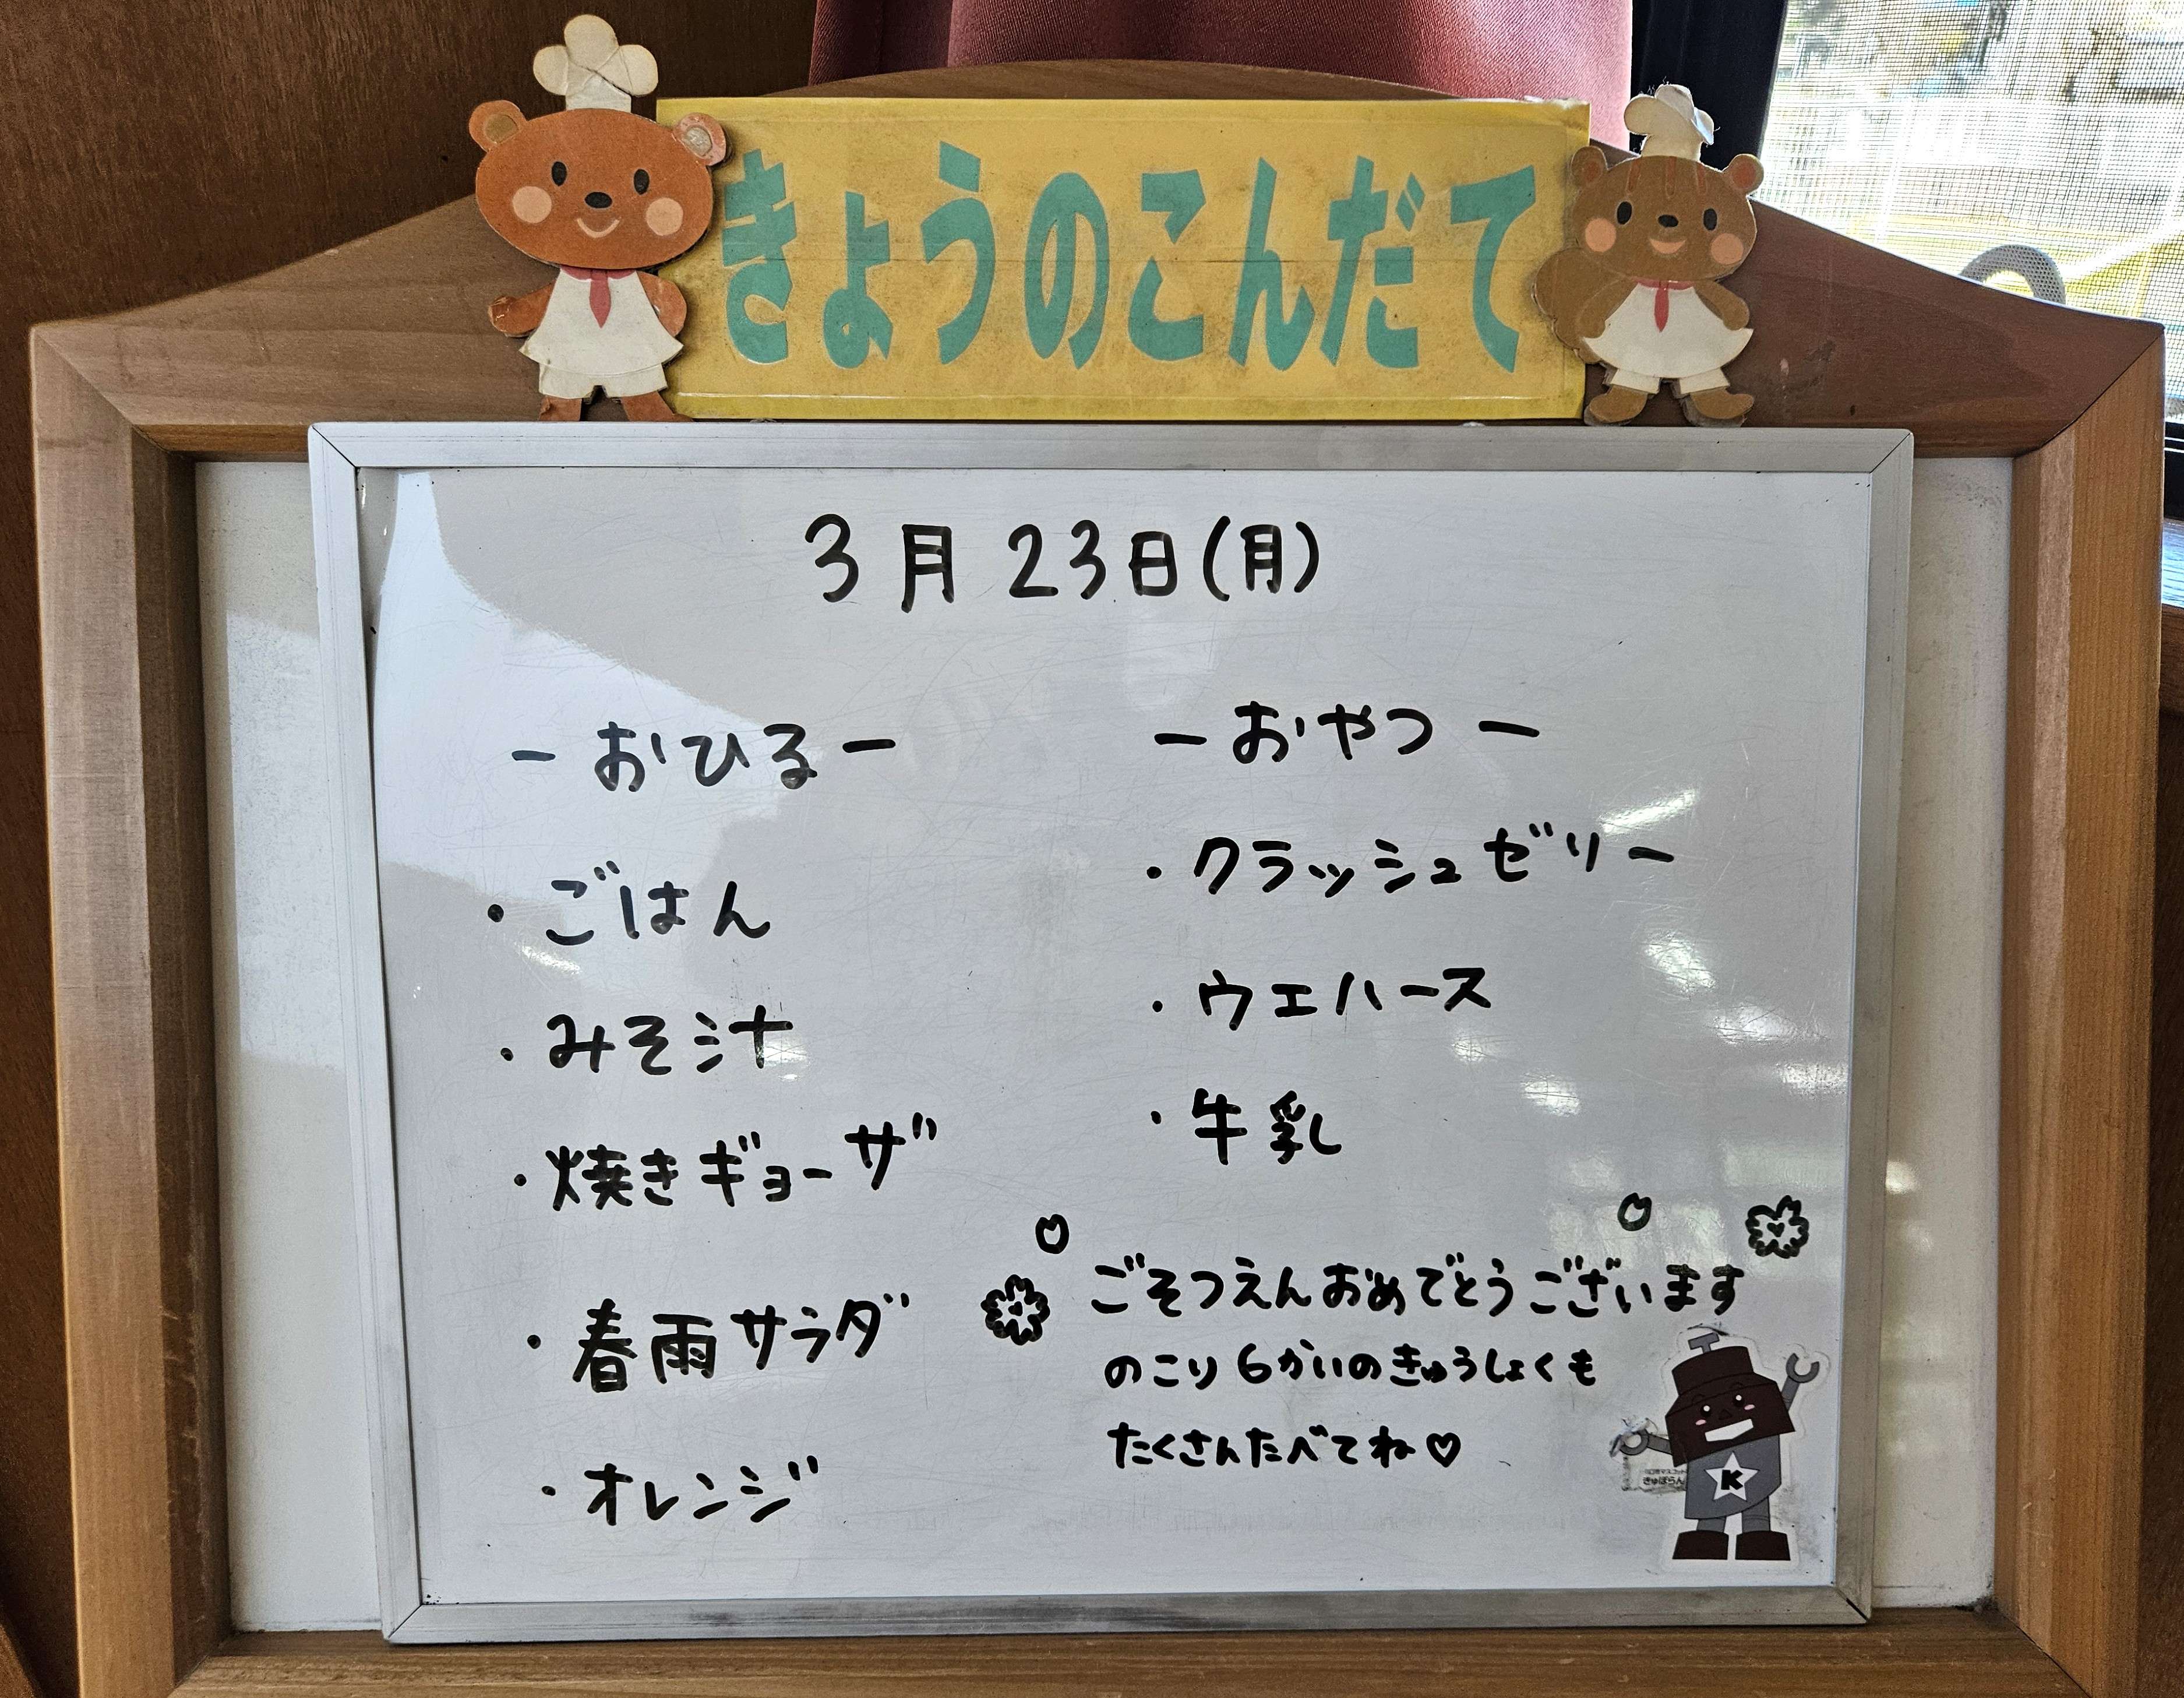 きょうのこんだて
3月23日(月)
ーおひるー
・ごはん
・みそ汁
・焼きギョーザ
・春雨サラダ
・オレンジ
ーおやつー
・クラッシュゼリー
・ウエハース
・牛乳
ごそつえんおめでとうございます
のこり6かいのきゅうしょくも
たくさんたべてね♡
K
きゅぽらん